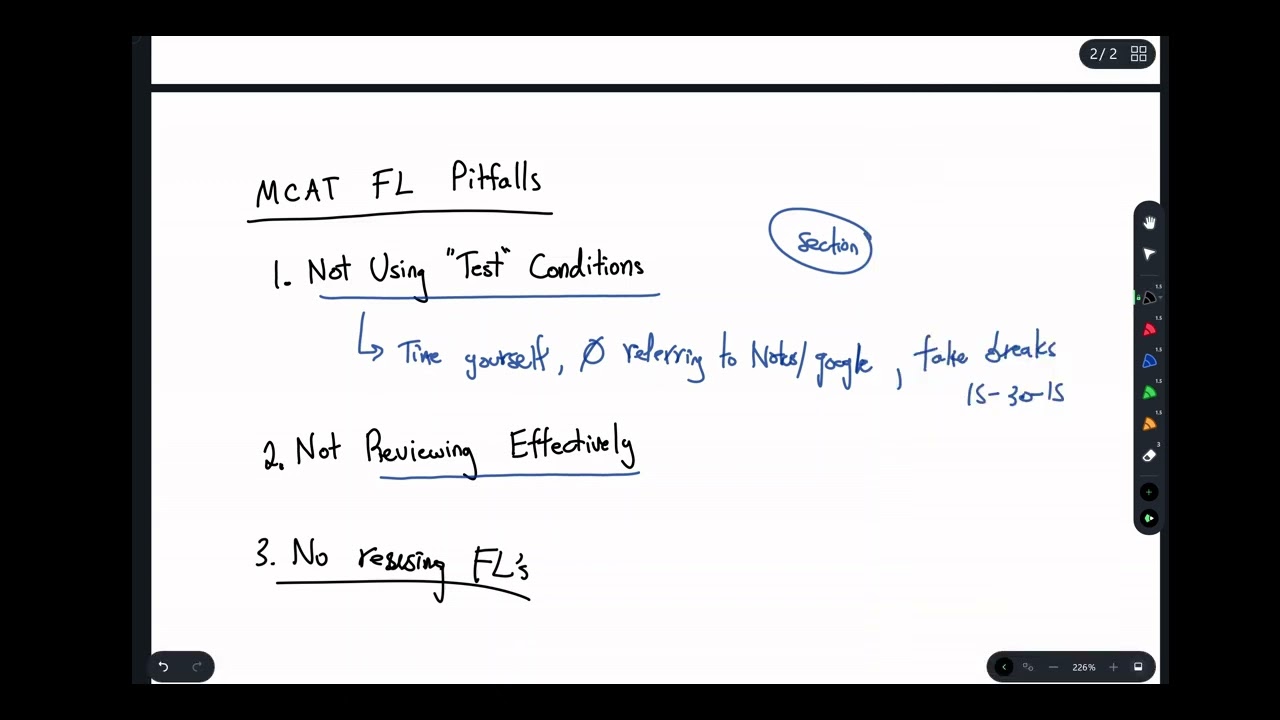 2/2
MCAT FL Pitfalls
section
1. Not Using "Test" Conditions
Time yourself, Ø referring to Notes/google, take breaks
15-30-15
2. Not Reviewing Effectively
3. No reusing FL's
226%